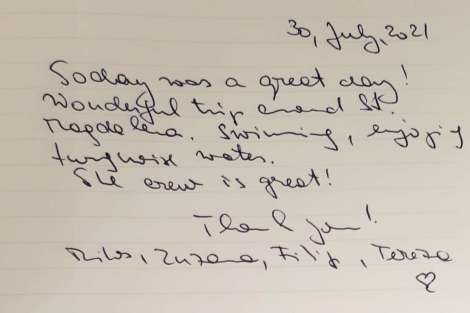 30, July, 2021
Today was a great day!
Wonderful trip around St.
Magdalena. Swimming, enjoying
turquoise water.
The crew is great!
Thank you!
Milos, Zuzana, Filip, Tereza
♡